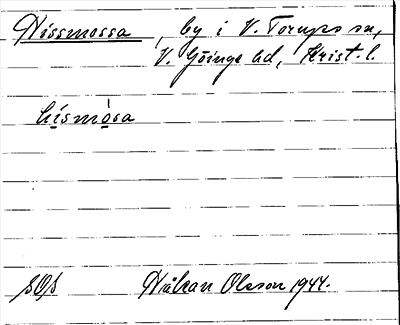 Nissmossa, by i V. Torups sn,
V. Göinge hd, Krist. l.
nísmósa
SOS Håkan Olsson 1944.